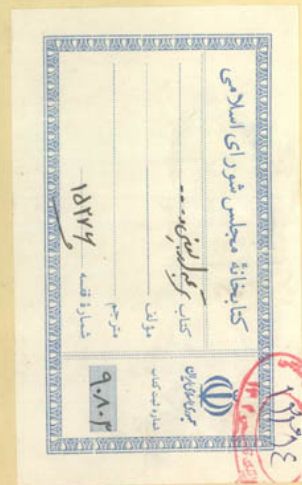 کتابخانهٔ مجلس شورای اسلامی
کتاب
مؤلف
مترجم
شمارهٔ قفسه ۱۵۲۷۶
جمهوری اسلامی ایران
شماره ثبت کتاب
۹۰۸۰۳